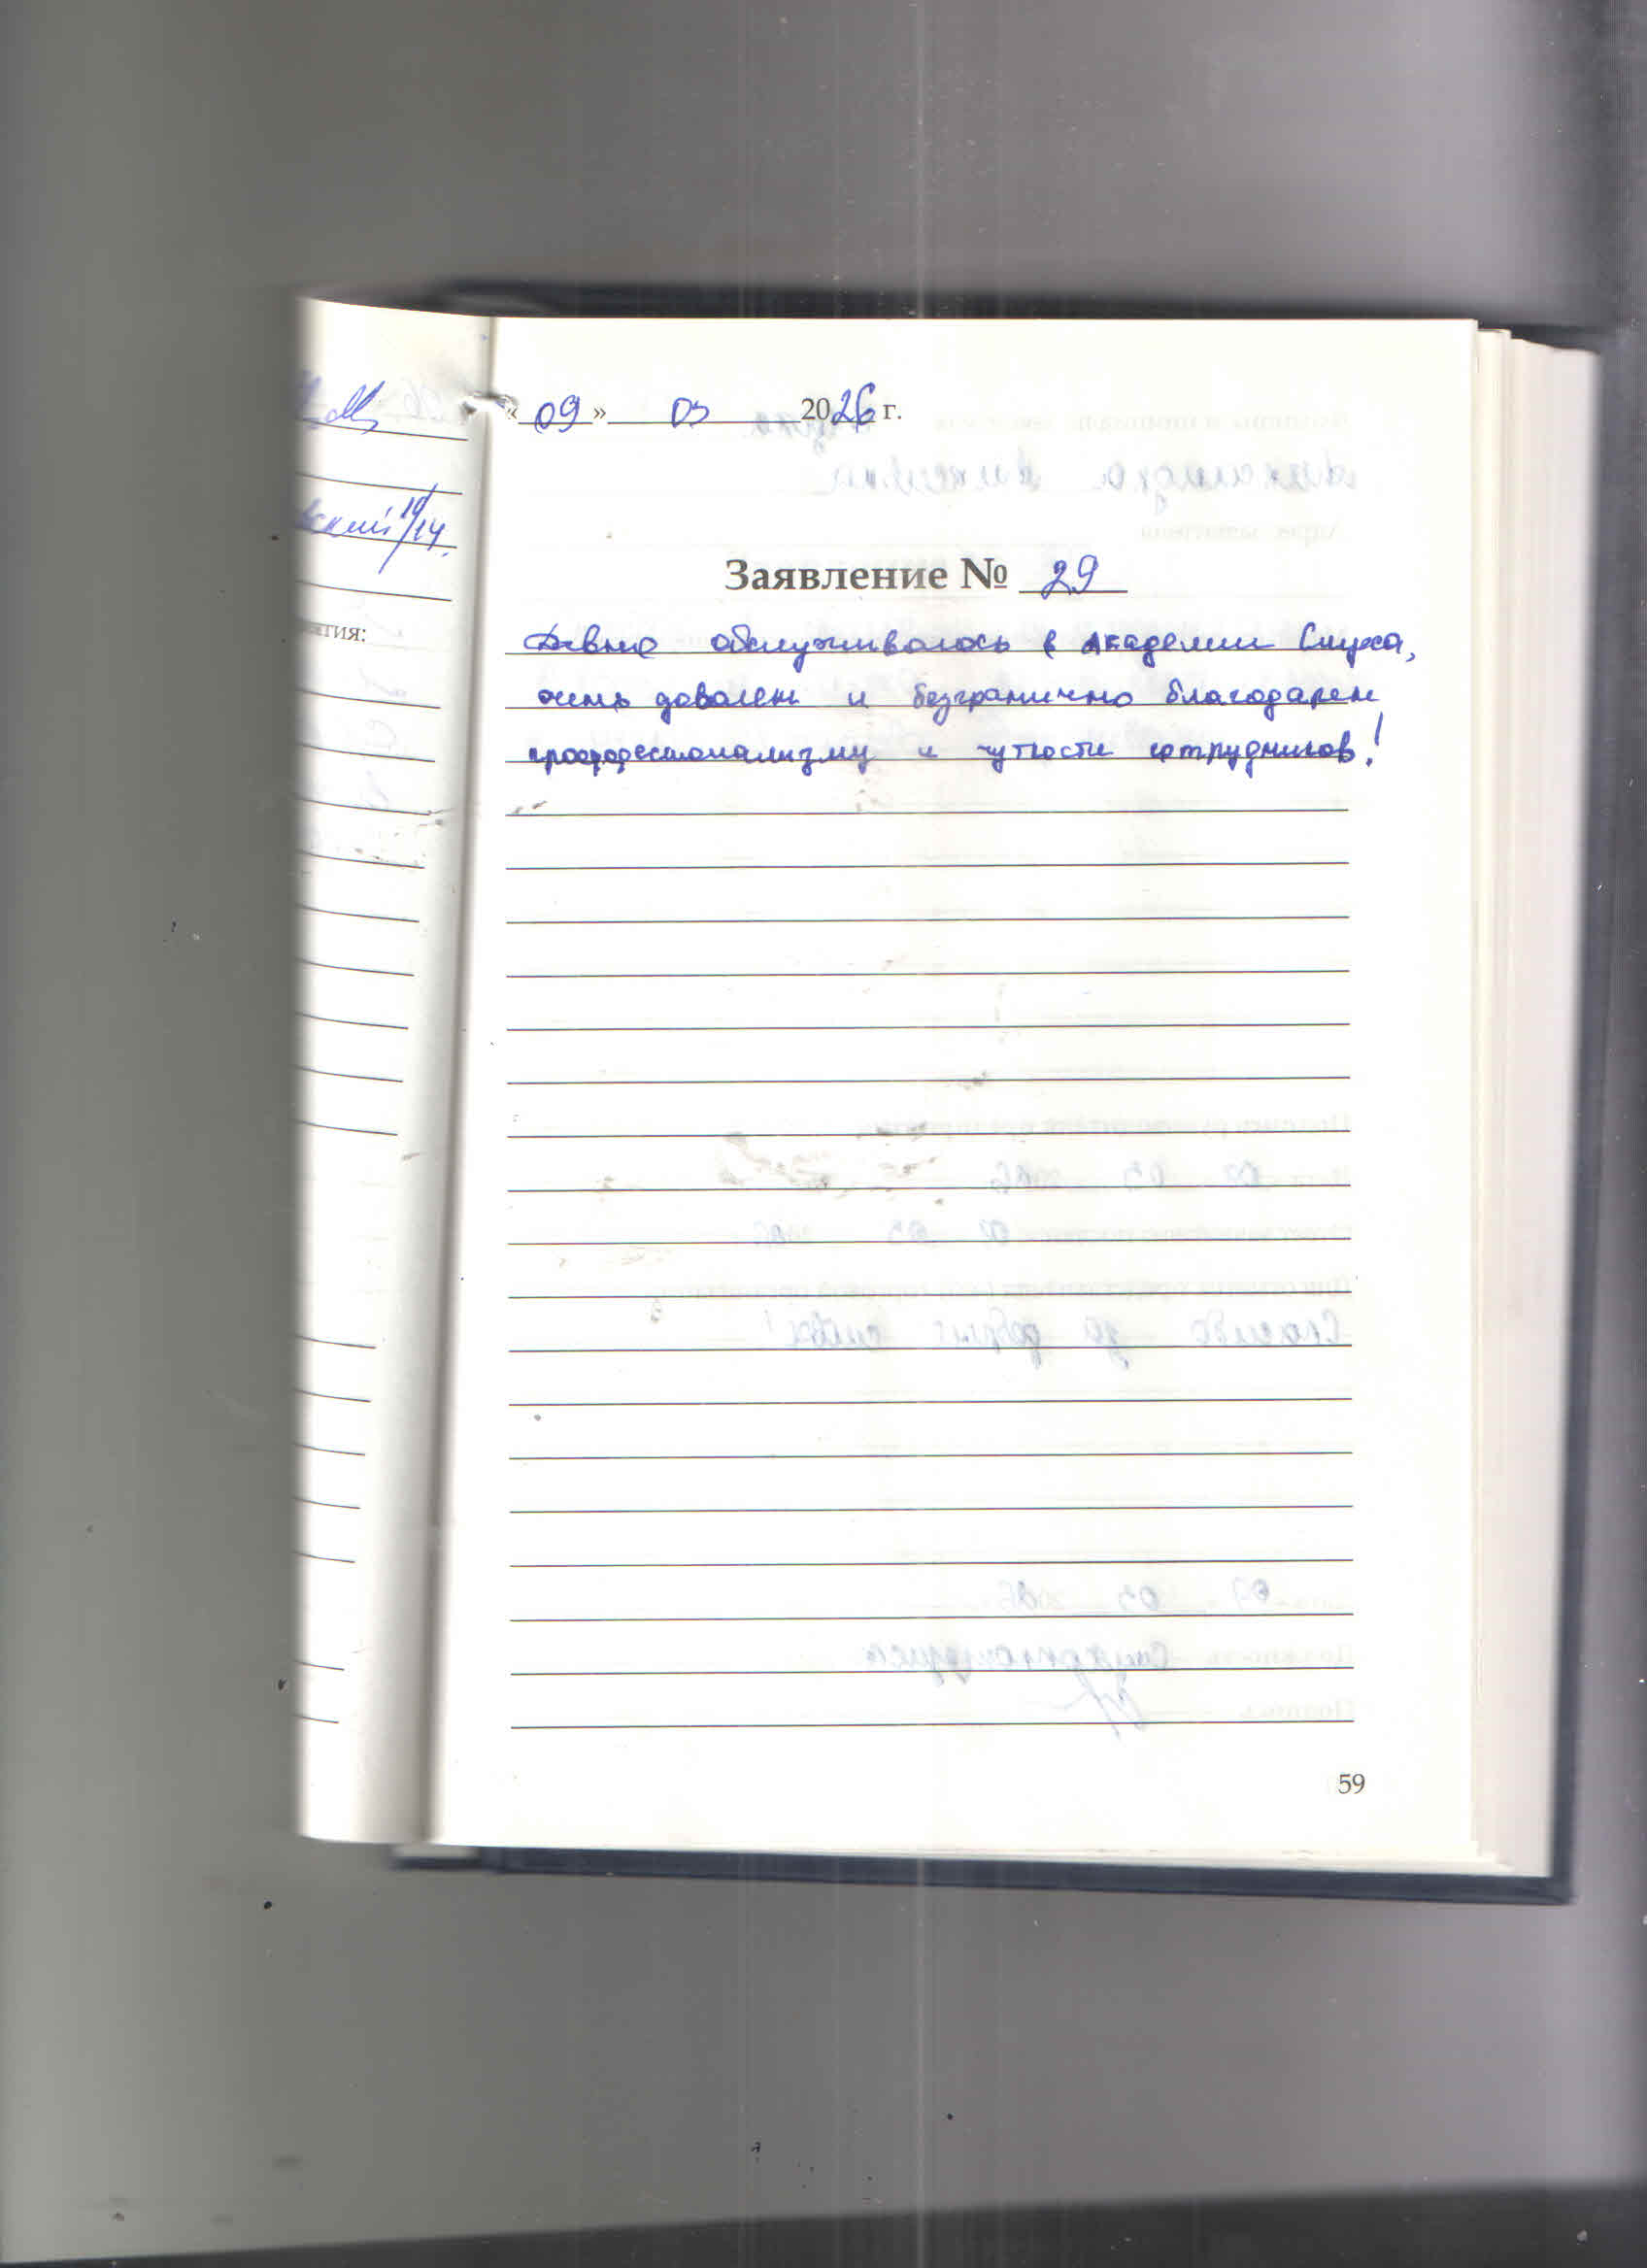 «09» 03 2026 г.
ский 19/14.
Заявление № 29
ятия:
Давно обслуживаюсь в Академии Слуха,
очень доволен и безгранично благодарен
профессионализму и чуткости сотрудников!
59